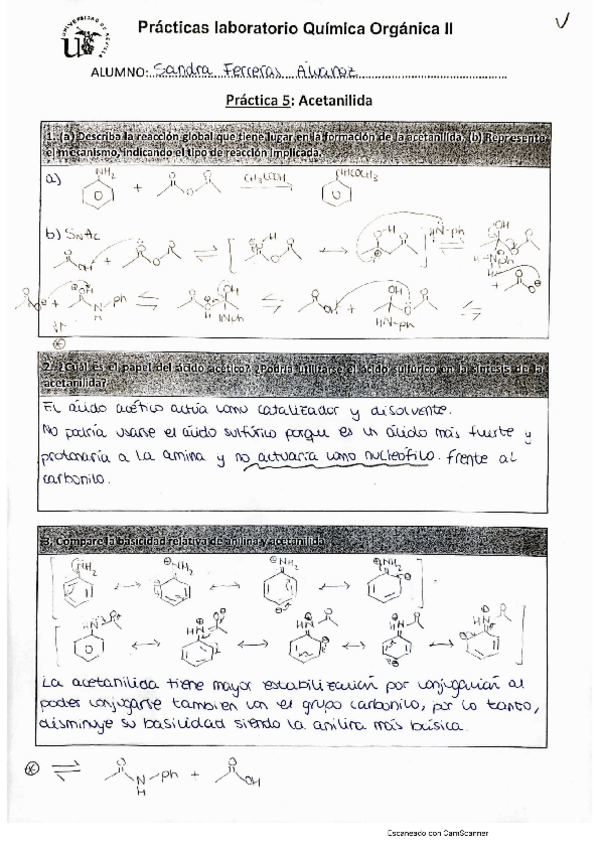 UNIVERSIDAD DE SEVILLA
Prácticas laboratorio Química Orgánica II
ALUMNO: Sandra Ferreras Álvarez
Práctica 5: Acetanilida
1. (a) Describa la reacción global que tiene lugar en la formación de la acetanilida. (b) Represente
el mecanismo, indicando el tipo de reacción implicada.
a) NH2 + O CH3COOH NHCOCH3
b) SNAc
2. ¿Cuál es el papel del ácido acético? ¿Podría utilizarse el ácido sulfúrico en la síntesis de la
acetanilida?
El ácido acético actúa como catalizador y disolvente.
No podría usarse el ácido sulfúrico porque es un ácido más fuerte y
protonaría a la amina y no actuaría como nucleófilo. frente al
carbonilo.
3. Compare la basicidad relativa de anilina y acetanilida
La acetanilida tiene mayor estabilización por conjugación al
poder conjugarse tambien con el grupo carbonilo, por lo tanto,
disminuye su basicidad siendo la anilina más básica.
* ⇌ O N H ph + O OH
Escaneado con CamScanner